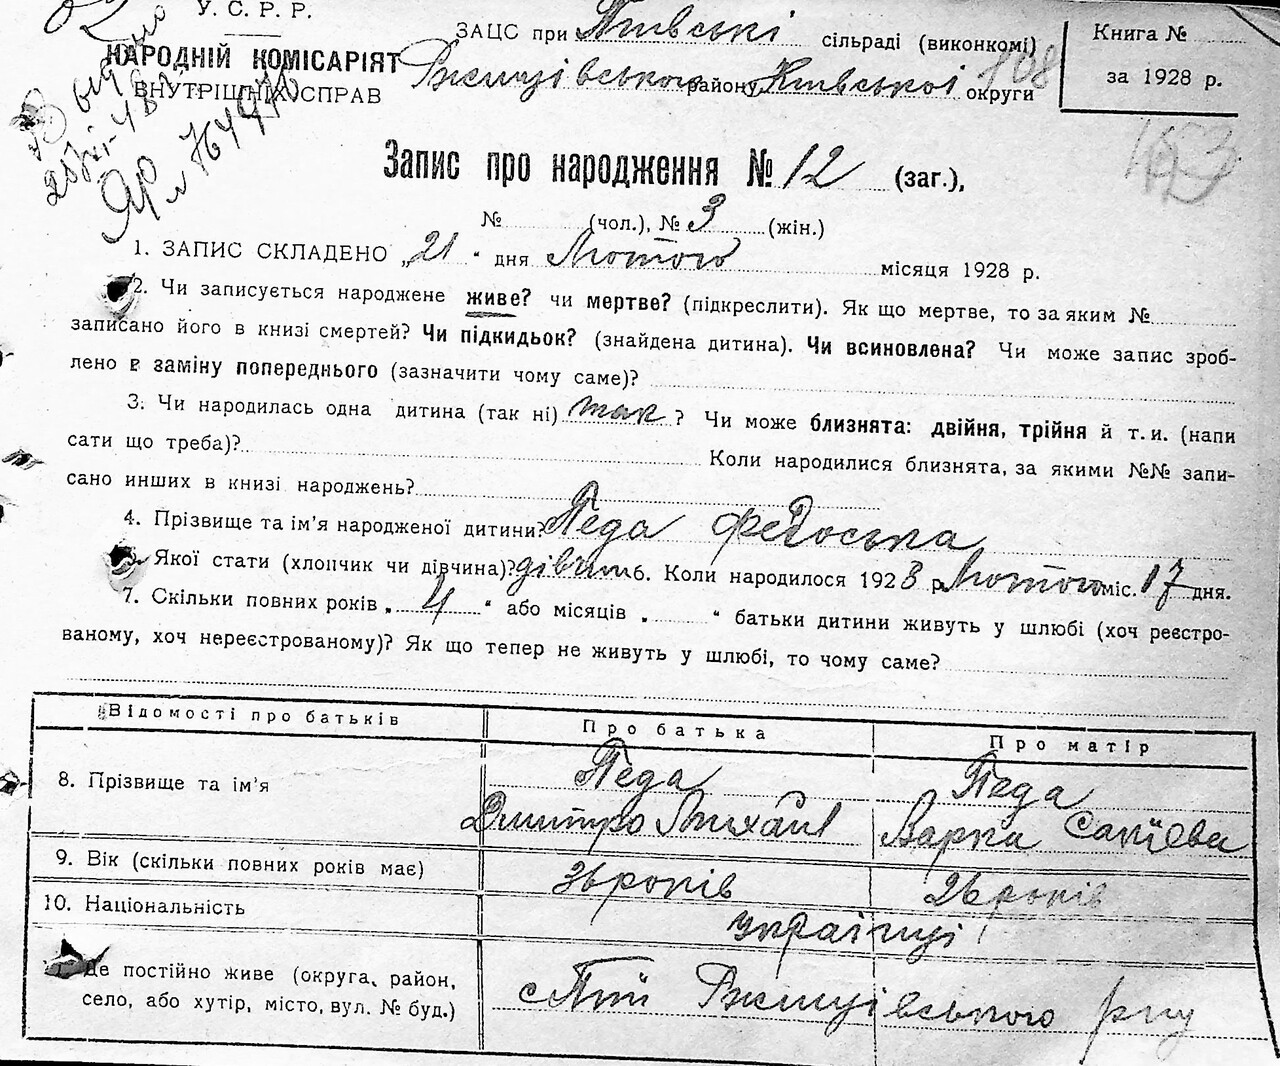 У.С.Р.Р.
НАРОДНІЙ КОМІСАРІЯТ
ВНУТРІШНІХ СПРАВ
ЗАЦС при сільраді (виконкомі)
Ржищівського району Київської округи
108
Книга №
за 1928 р.
Запис про народження № 12 (заг.),
№ (чол.), № 3 (жін.)
1. ЗАПИС СКЛАДЕНО „21“ дня Лютого місяця 1928 р.
2. Чи записується народжене живе? чи мертве? (підкреслити). Як що мертве, то за яким №
записано його в книзі смертей? Чи підкидьок? (знайдена дитина). Чи всиновлена? Чи може запис зроб-
лено в заміну попереднього (зазначити чому саме)?
3. Чи народилась одна дитина (так ні) так ? Чи може близнята: двійня, трійня й т.и. (напи
сати що треба)? Коли народилися близнята, за якими №№ запи-
сано инших в книзі народжень?
4. Прізвище та ім’я народженої дитини? Педа Федоська
Якої стати (хлопчик чи дівчина)? дівчин 6. Коли народилося 1928 р. Лютого міс. 17 дня.
7. Скільки повних років „ 4 “ або місяців „ “ батьки дитини живуть у шлюбі (хоч реєстро-
ваному, хоч нереєстрованому)? Як що тепер не живуть у шлюбі, то чому саме?
Відомості про батьків Про батька Про матір
8. Прізвище та ім’я Педа Педа
Дмитро Михайл Варка
9. Вік (скільки повних років має) 36 років 26 років
10. Національність Українці
Де постійно живе (округа, район,
село, або хутір, місто, вул. № буд.) Ржищівського р-ну